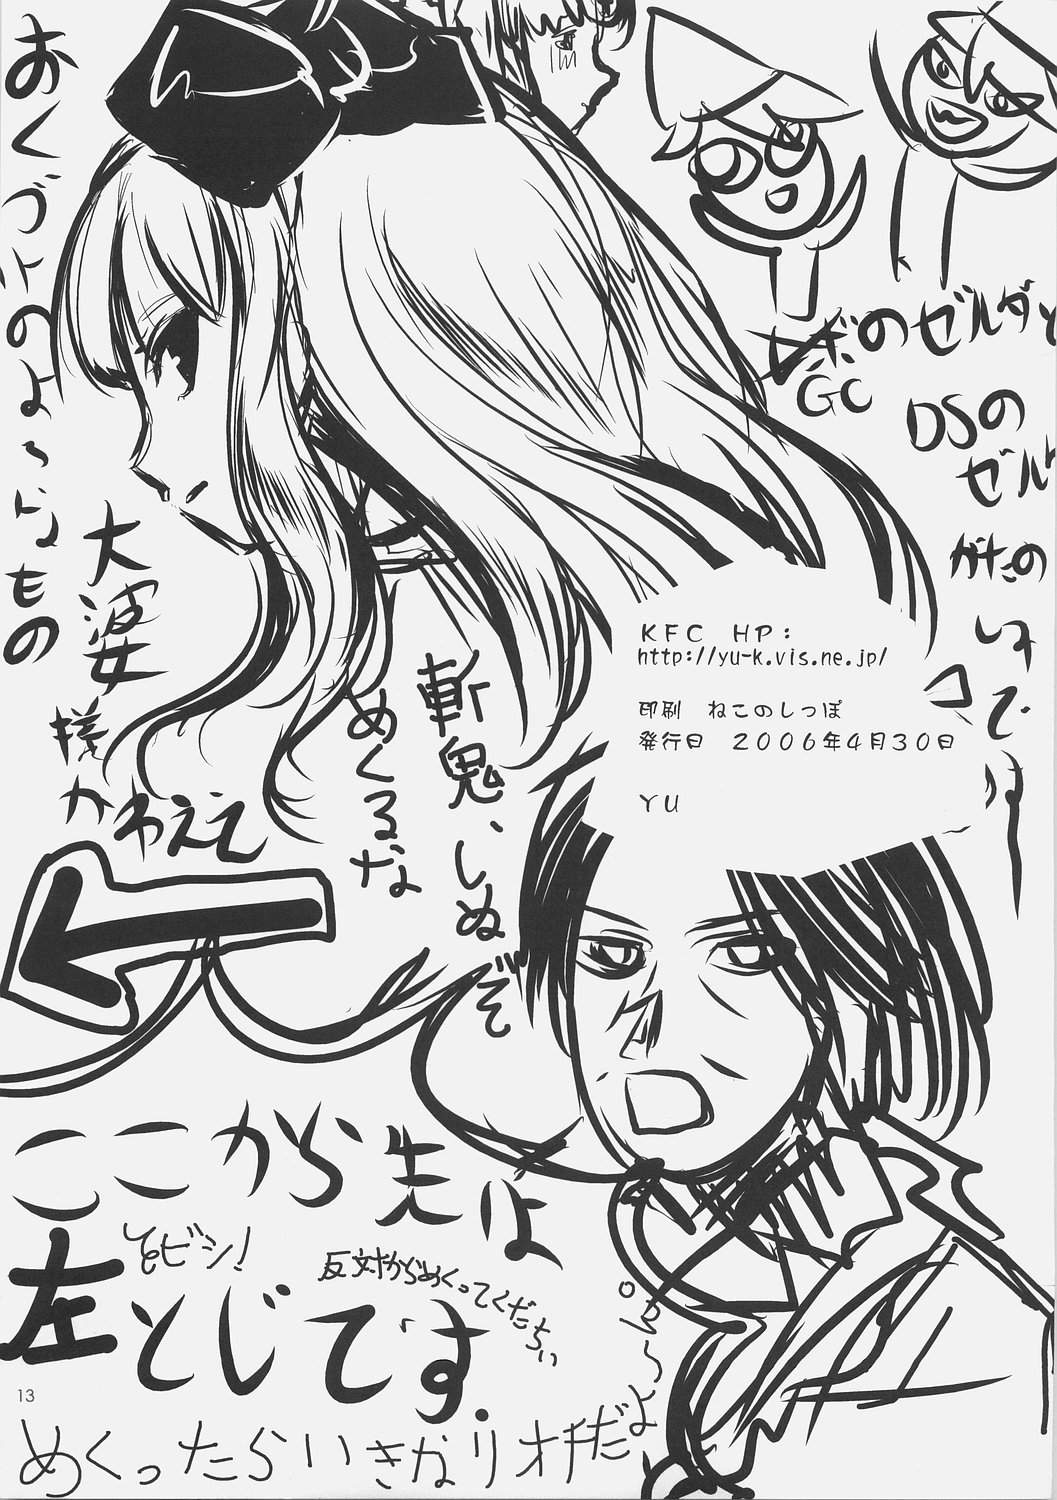 おくづけのよ〜なもの
GCのゼルダと
DSのゼル
がたの
です
KFC HP:
http://yu-k.vis.ne.jp/
印刷 ねこのしっぽ
発行日 2006年4月30日
YU
斬鬼、しぬぞ
めくるな
大婆
様
かわええ
ここから先は
左とじです.
とビシ!
反対からめくってくだちい
めくったらいきなりオチだよ〜
13